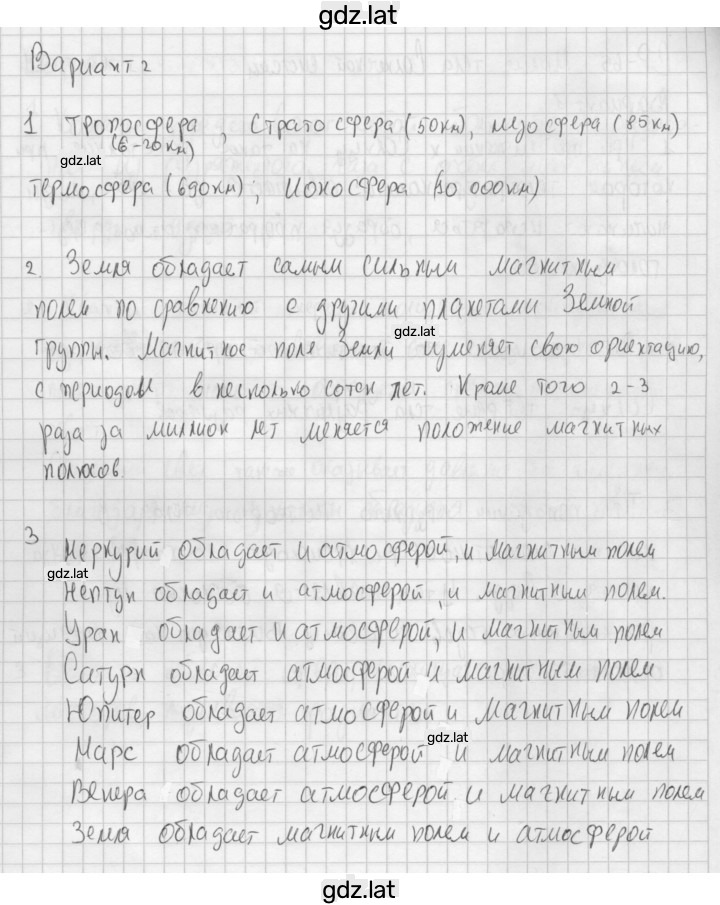 gdz.lat
Вариант 2
1 Тропосфера, Стратосфера (50км), мезосфера (85км)
(6-20км)
gdz.lat
термосфера (690км); Ионосфера (10 000км)
2. Земля обладает самым сильным магнитным
полем по сравнению с другими планетами Земной
gdz.lat
группы. Магнитное поле Земли изменяет свою ориентацию,
с периодом в несколько сотен лет. Кроме того 2-3
раза за миллион лет меняется положение магнитных
полюсов.
3 Меркурий обладает и атмосферой, и магнитным полем
gdz.lat
Нептун обладает и атмосферой, и магнитным полем.
Уран обладает и атмосферой, и магнитным полем
Сатурн обладает атмосферой и магнитным полем
Юпитер обладает атмосферой и магнитным полем
gdz.lat
Марс обладает атмосферой и магнитным полем
Венера обладает атмосферой и магнитным полем
Земля обладает магнитным полем и атмосферой
gdz.lat